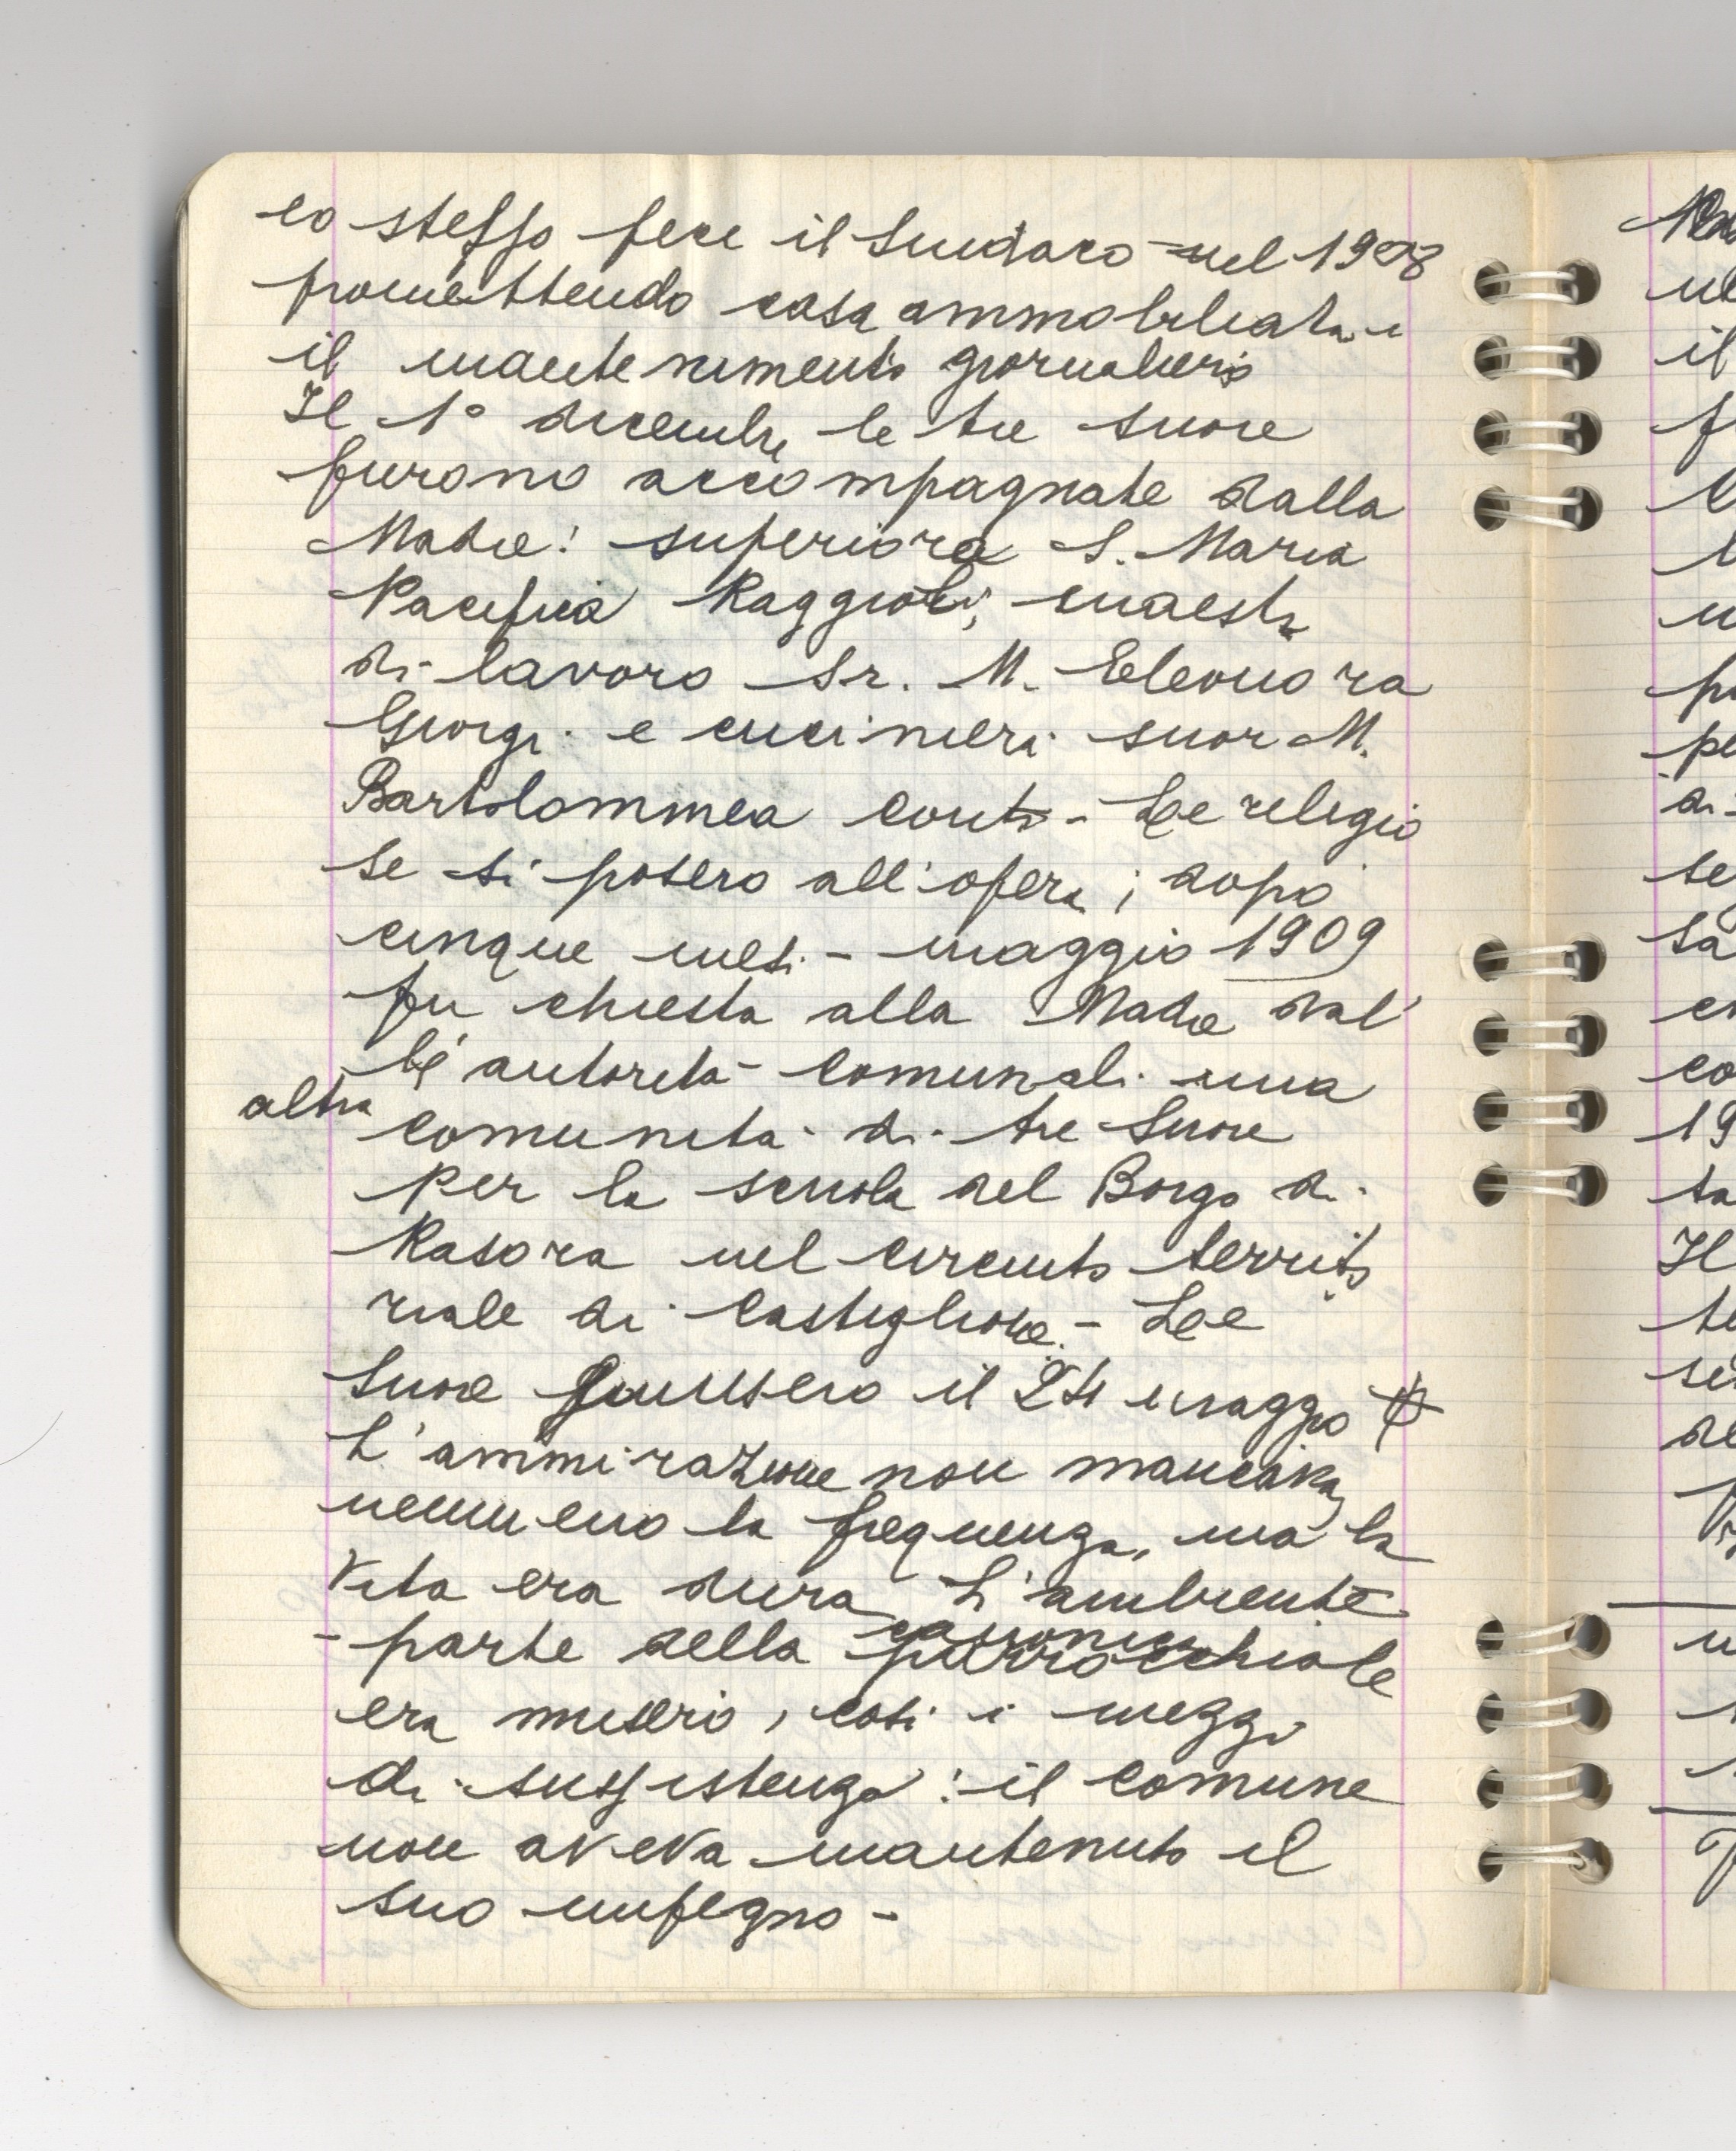 lo stesso fece il Sindaco nel 1908
promettendo casa ammobiliata e
il mantenimento giornaliero
Il 1° dicembre le tre suore
furono accompagnate dalla
Madre: superiora S. Maria
Pacifica Raggioli, maestra
di lavoro Sr. M. Eleonora
Giorgi e cuciniera suor M.
Bartolommea Conti - Le religio
se si posero all'opera; dopo
cinque mesi - maggio 1909
fu chiesta alla Madre dal'
le autorità comunali una
altra comunità di tre Suore
per la scuola del Borgo di
Rasora nel circuito territo
riale di Castiglione - Le
Suore giunsero il 24 maggio
L'ammirazione non mancava
nemmeno la frequenza, ma la
vita era dura L'ambiente
- parte della canonica parrocchiale
era misero, così i mezzi
di sussistenza: il Comune
non aveva mantenuto il
suo impegno -
ne
il